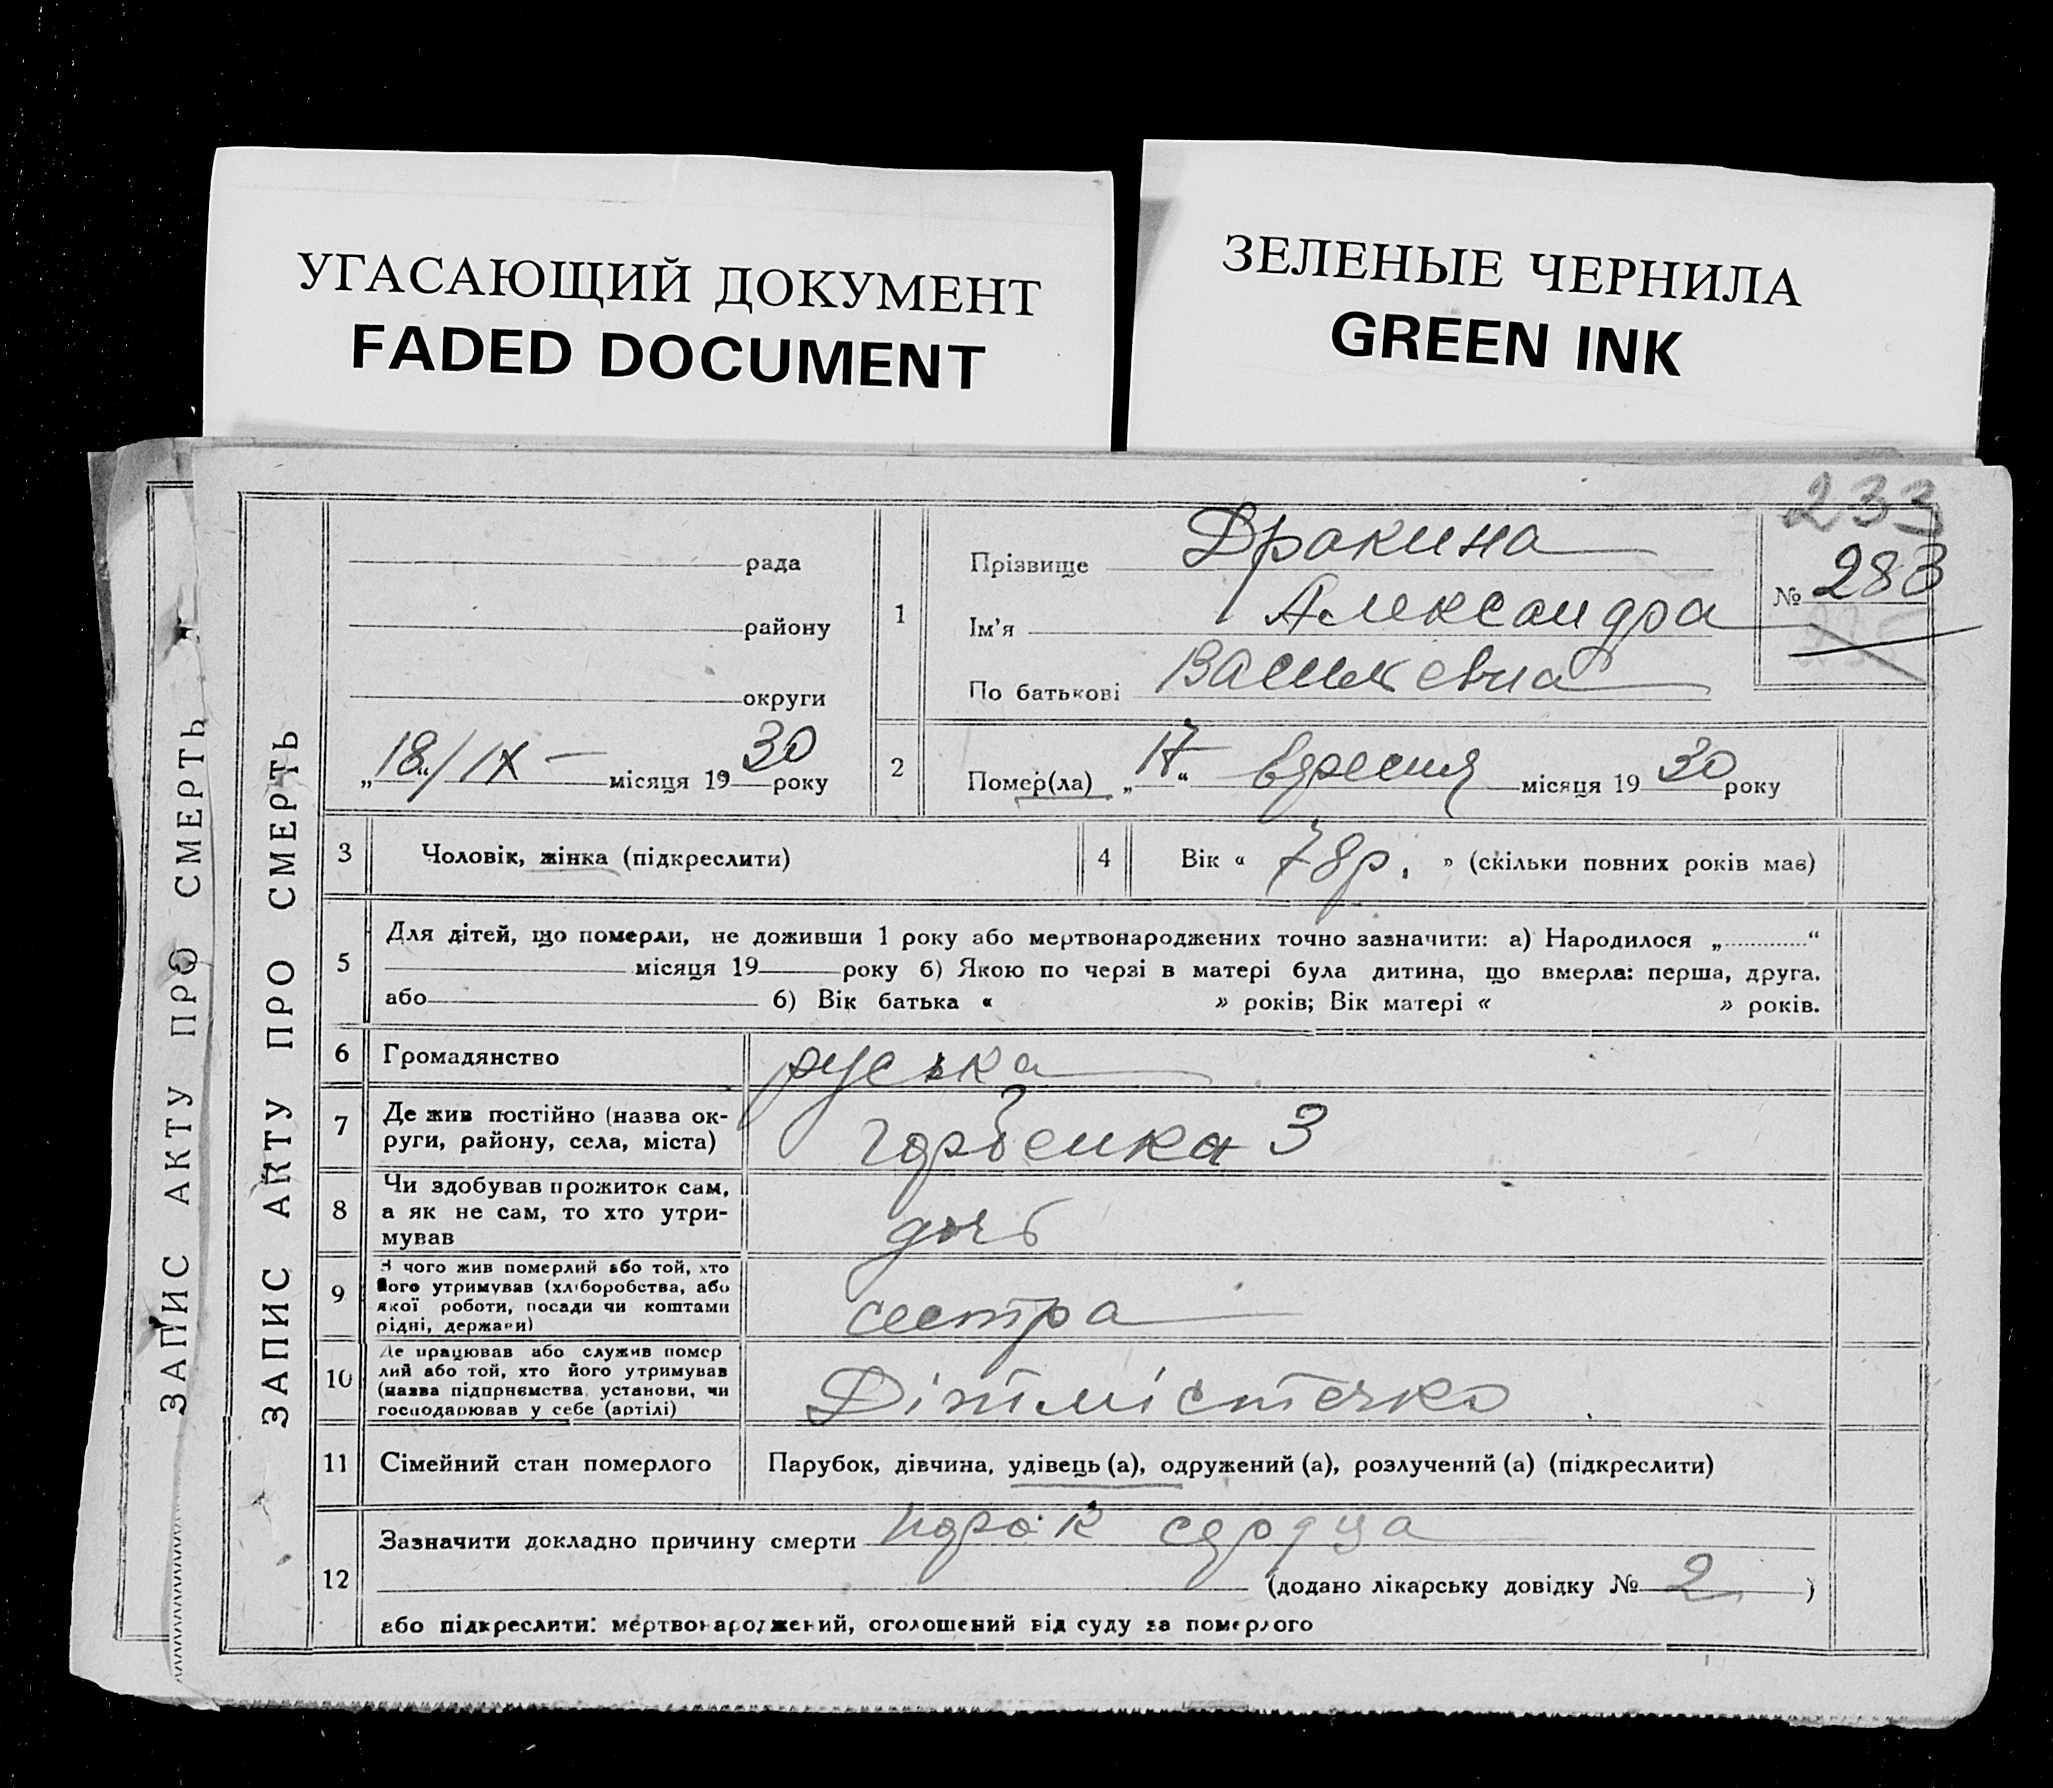 УГАСАЮЩИЙ ДОКУМЕНТ
FADED DOCUMENT
ЗЕЛЕНЫЕ ЧЕРНИЛА
GREEN INK
ЗАПИС АКТУ ПРО СМЕРТЬ
ЗАПИС АКТУ ПРО СМЕРТЬ
233
№ 283
рада
району
округи
„18“/IX – місяця 1930 року
1
Прізвище Дракина
Ім'я Александра
По батькові
2
Помер(ла) „17“ вересня місяця 1930 року
3 Чоловік, жінка (підкреслити)
4 Вік « 78 р. » (скільки повних років має)
5 Для дітей, що померли, не доживши 1 року або мертвонароджених точно зазначити: а) Народилося „ “
місяця 19 року б) Якою по черзі в матері була дитина, що вмерла: перша, друга.
або б) Вік батька « » років; Вік матері « » років.
6 Громадянство руська
7 Де жив постійно (назва ок-
руги, району, села, міста)
3
8 Чи здобував прожиток сам,
а як не сам, то хто утри-
мував
дочь
9 З чого жив померлий або той, хто
його утримував (хліборобства, або
якої роботи, посади чи коштами
рідні, держави)
сестра
10 Де працював або служив помер
лий або той, хто його утримував
(назва підприємства, установи, чи
господарював у себе (артілі)
Дітмістечко
11 Сімейний стан померлого Парубок, дівчина, удівець (а), одружений (а), розлучений (а) (підкреслити)
12 Зазначити докладно причину смерти порок сердца
(додано лікарську довідку № 2 )
або підкреслити: мертвонароджений, оголошений від суду за померлого